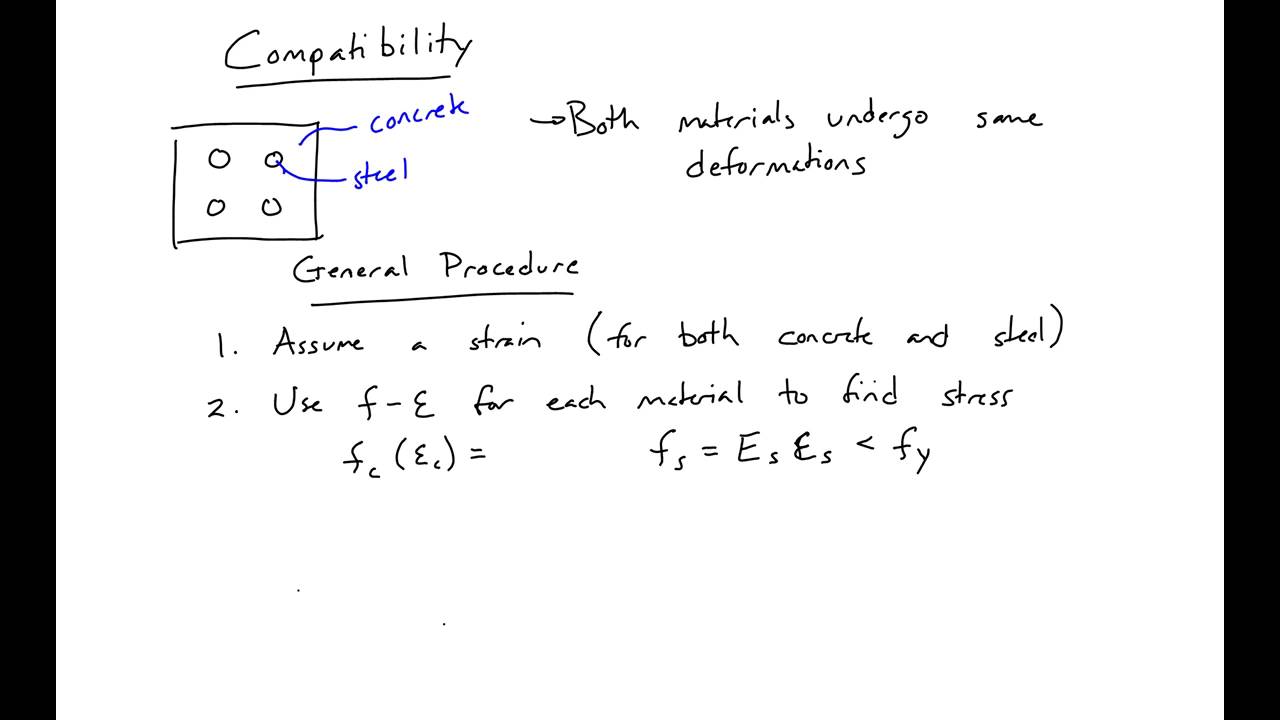 Compatibility
concrete
steel
→ Both materials undergo same
deformations
General Procedure
1. Assume a strain (for both concrete and steel)
2. Use f-ε for each material to find stress
f_c (ε_c) =
f_s = E_s ε_s < f_y